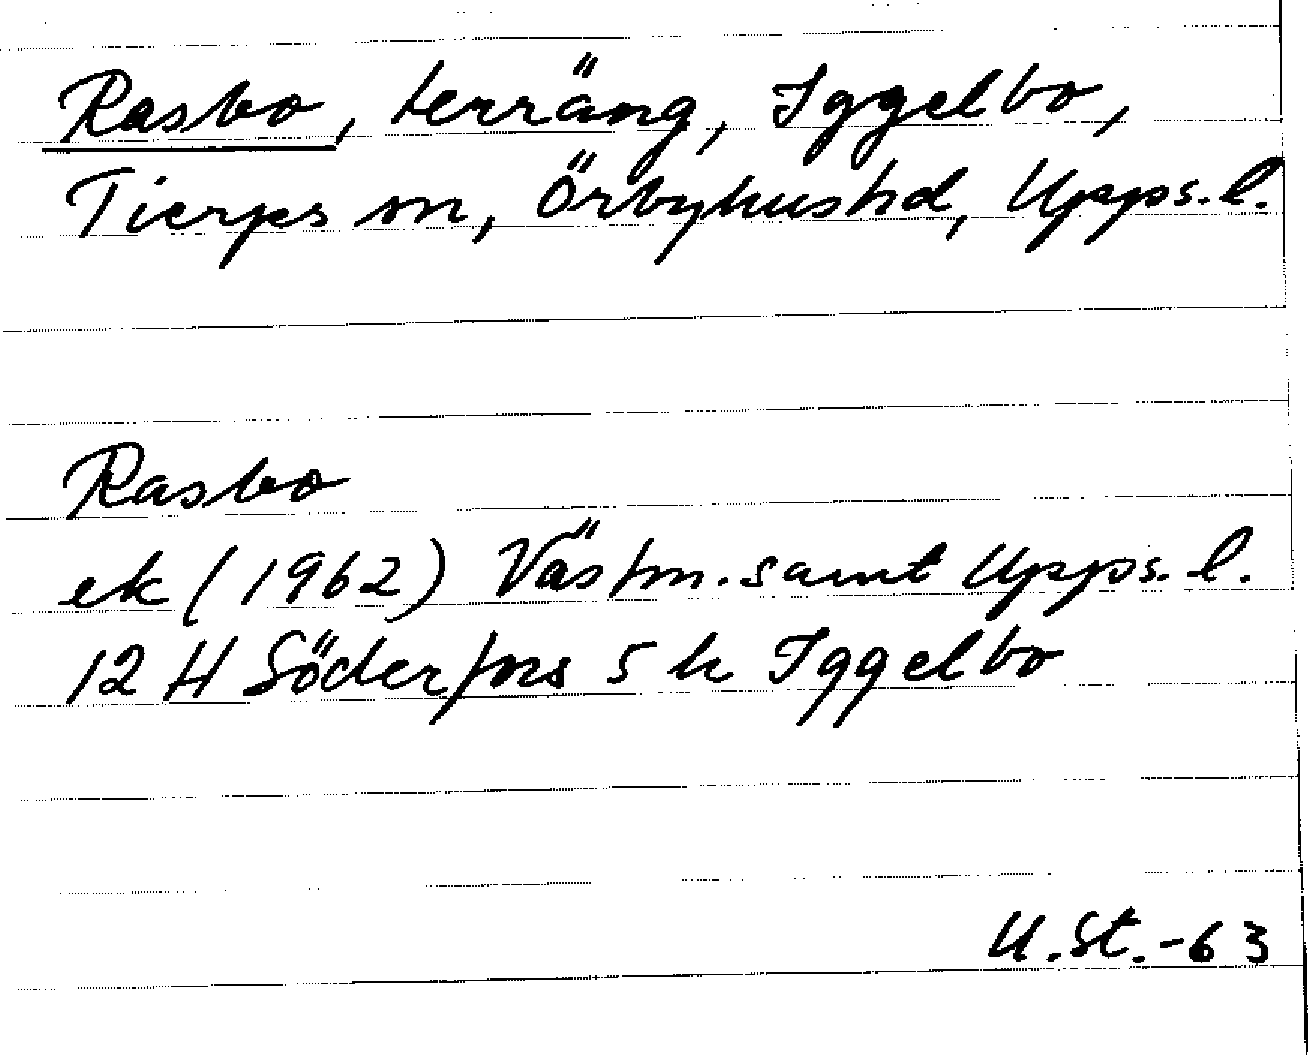 Rasbo, terräng, Iggelbo,
Tierps sn, Örbyhus hd, Upps. l.
Rasbo
ek (1962) Västm. samt Upps. l.
12 H Söderfors 5 h Iggelbo
U.St.-63